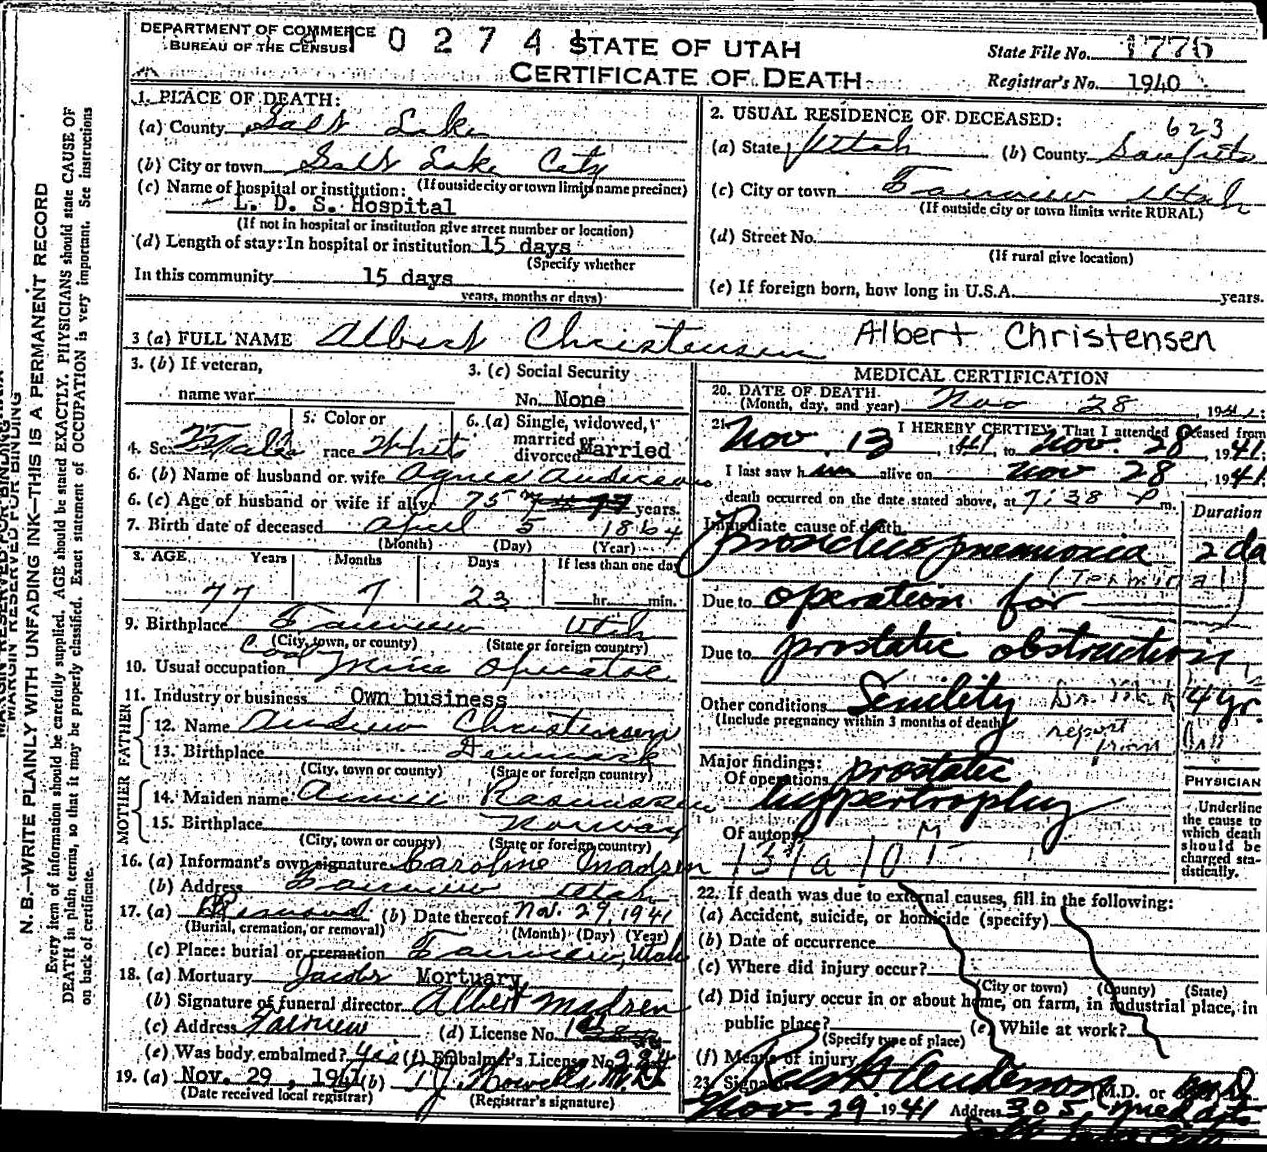 DEPARTMENT OF COMMERCE
BUREAU OF THE CENSUS
0274
STATE OF UTAH
CERTIFICATE OF DEATH
State File No. 1776
Registrar's No. 1940
MARGIN RESERVED FOR BINDING
N. B.—WRITE PLAINLY WITH UNFADING INK—THIS IS A PERMANENT RECORD
Every item of information should be carefully supplied. AGE should be stated EXACTLY. PHYSICIANS should state CAUSE OF
DEATH in plain terms, so that it may be properly classified. Exact statement of OCCUPATION is very important. See instructions
on back of certificate.
1. PLACE OF DEATH:
(a) County Salt Lake
(b) City or town Salt Lake City
(If outside city or town limits name precinct)
(c) Name of hospital or institution:
L. D. S. Hospital
(If not in hospital or institution give street number or location)
(d) Length of stay: In hospital or institution 15 days
(Specify whether
In this community 15 days
years, months or days)
2. USUAL RESIDENCE OF DECEASED:
623
(a) State Utah (b) County Sanpete
(c) City or town Fairview Utah
(If outside city or town limits write RURAL)
(d) Street No.
(If rural give location)
(e) If foreign born, how long in U.S.A. years.
3 (a) FULL NAME Albert Christensen Albert Christensen
3. (b) If veteran,
name war
3. (c) Social Security
No. None
4. Sex Male
5. Color or
race White
6. (a) Single, widowed,
married or
divorced Married
6. (b) Name of husband or wife Agnes Anderson
6. (c) Age of husband or wife if alive 75 years.
7. Birth date of deceased April 5 1864
(Month) (Day) (Year)
8. AGE Years Months Days If less than one day
77 7 23 hr. min.
9. Birthplace Fairview Utah
(City, town, or county) (State or foreign country)
10. Usual occupation Coal Mine Operator
11. Industry or business Own business
FATHER
12. Name Andrew Christensen
13. Birthplace Denmark
(City, town or county) (State or foreign country)
MOTHER
14. Maiden name Annie Rasmussen
15. Birthplace Norway
(City, town or county) (State or foreign country)
16. (a) Informant's own signature Caroline Madsen
(b) Address Fairview Utah
17. (a) Removal (b) Date thereof Nov. 29, 1941
(Burial, cremation, or removal) (Month) (Day) (Year)
(c) Place: burial or cremation Fairview, Utah
18. (a) Mortuary Jacobs Mortuary
(b) Signature of funeral director Albert Madsen
(c) Address Fairview (d) License No.
(e) Was body embalmed? Yes (f) Embalmer's License No.
19. (a) Nov. 29, 1941 (b) M.D.
(Date received local registrar) (Registrar's signature)
MEDICAL CERTIFICATION
20. DATE OF DEATH
(Month, day, and year) Nov 28, 1941
21. I HEREBY CERTIFY, That I attended deceased from
Nov. 13, 1941, to Nov. 28, 1941.
I last saw him alive on Nov 28, 1941
death occurred on the date stated above, at 7:38 P m.
Duration
Immediate cause of death
Bronchus pneumonia 2 da
(Terminal)
Due to operation for
Due to prostatic obstruction,
Other conditions Senility 4 yr.
(Include pregnancy within 3 months of death)
report from
Major findings:
Of operations prostatic
hypertrophy
Of autopsy
PHYSICIAN
Underline
the cause to
which death
should be
charged sta-
tistically.
22. If death was due to external causes, fill in the following:
(a) Accident, suicide, or homicide (specify)
(b) Date of occurrence
(c) Where did injury occur?
(City or town) (County) (State)
(d) Did injury occur in or about home, on farm, in industrial place, in
public place? (e) While at work?
(Specify type of place)
(f) Means of injury
23. Signature Anderson (M.D. or
Nov. 29 1941 Address 305
Salt Lake City